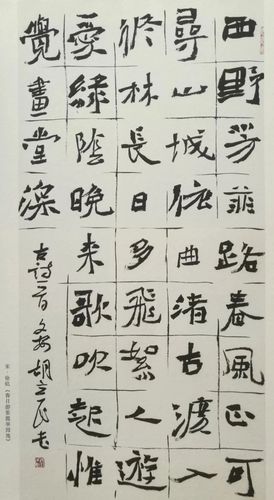 西野芳菲路春風正可
尋山城依曲渚古渡入
修林長日多飛絮人遊
愛綠陰晚来歌吹起惟
覺畫堂深
古詩一首 胡立民书
宋·徐铉《春日游